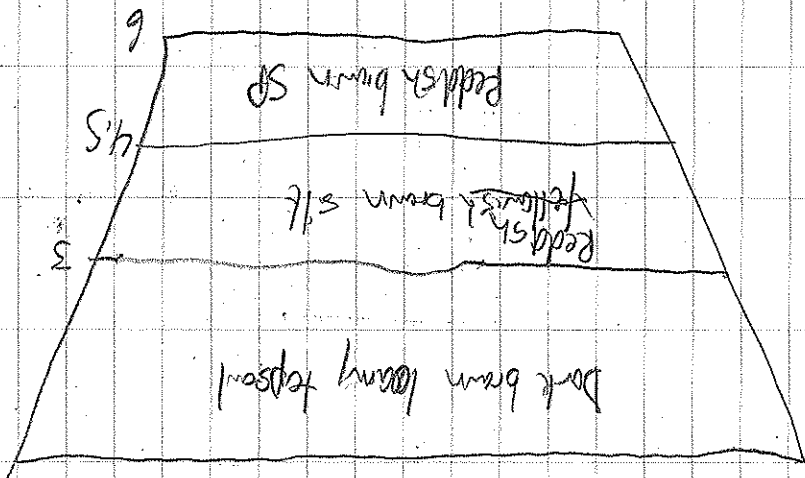 Dark brown loamy topsoil
3
Reddish
Yellowish brown silt
4.5
Reddish brown SP
6